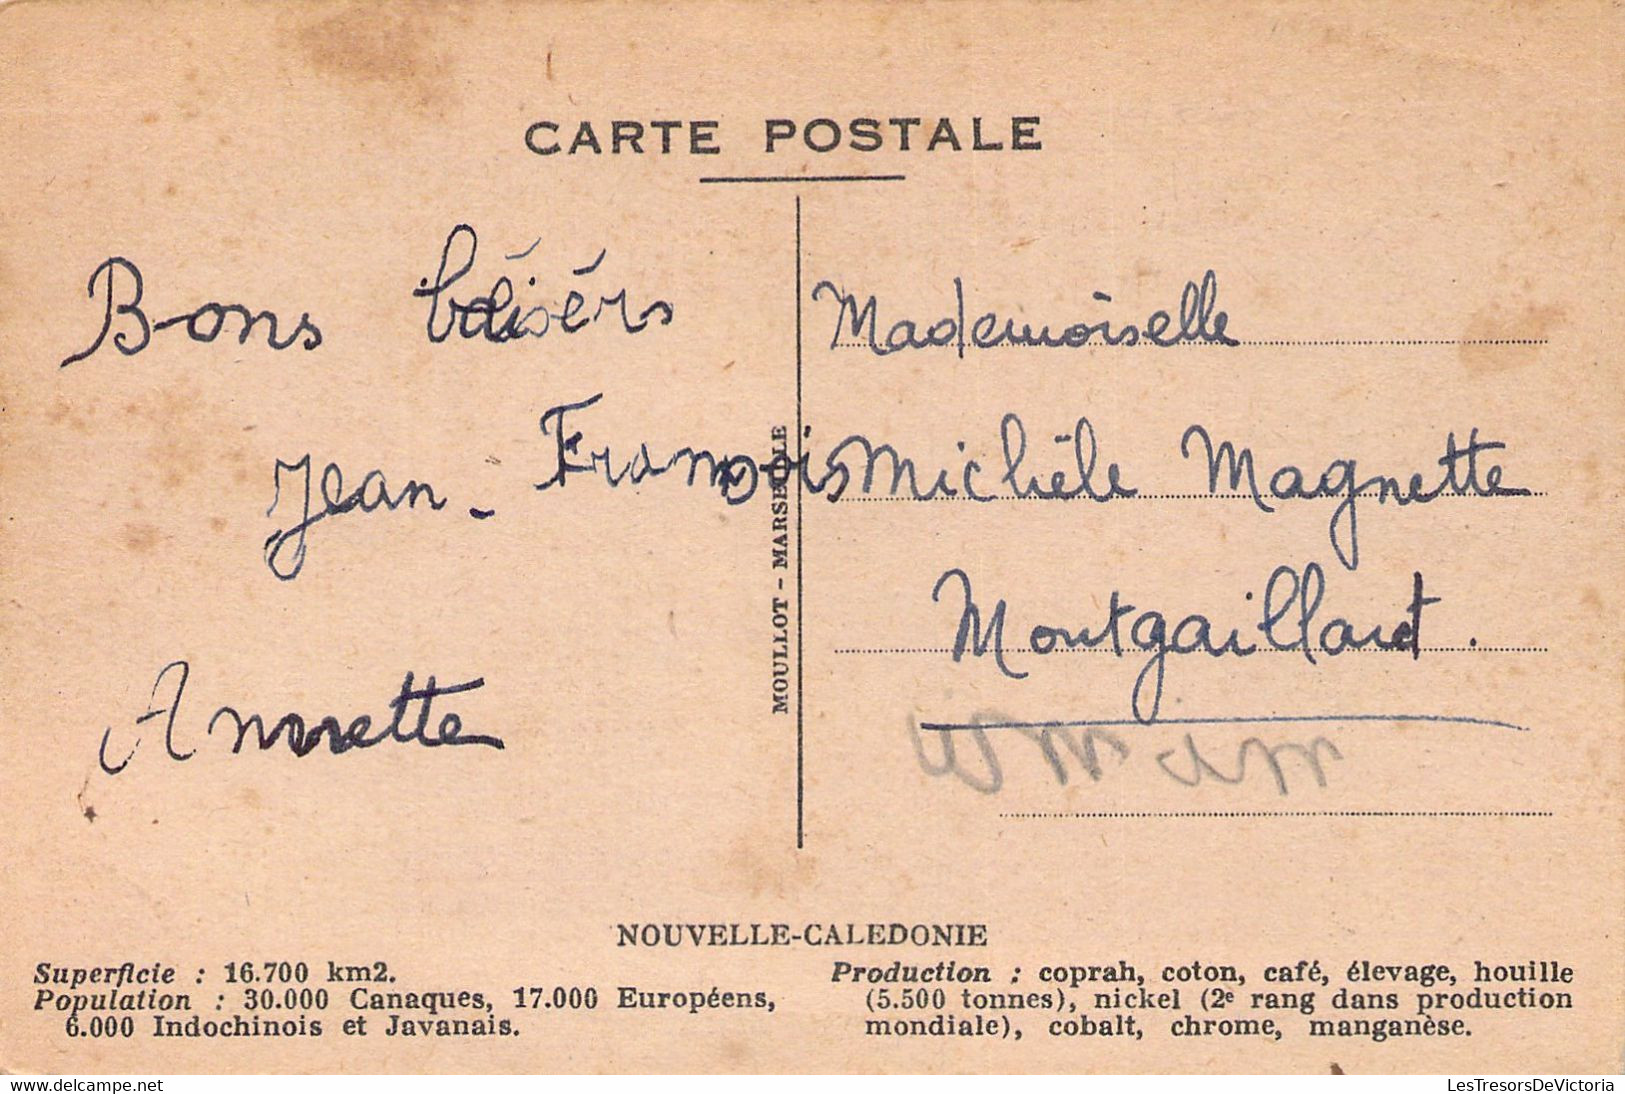 CARTE POSTALE
Bons baisérs
Jean-François
Annette
MOULLOT - MARSEILLE
Mademoiselle
Michèle Magnette
Montgaillard.
NOUVELLE-CALEDONIE
Superficie : 16.700 km2.
Population : 30.000 Canaques, 17.000 Européens,
6.000 Indochinois et Javanais.
Production : coprah, coton, café, élevage, houille
(5.500 tonnes), nickel (2e rang dans production
mondiale), cobalt, chrome, manganèse.
LesTresorsDeVictoria - delcampe.net
LesTresorsDeVictoria